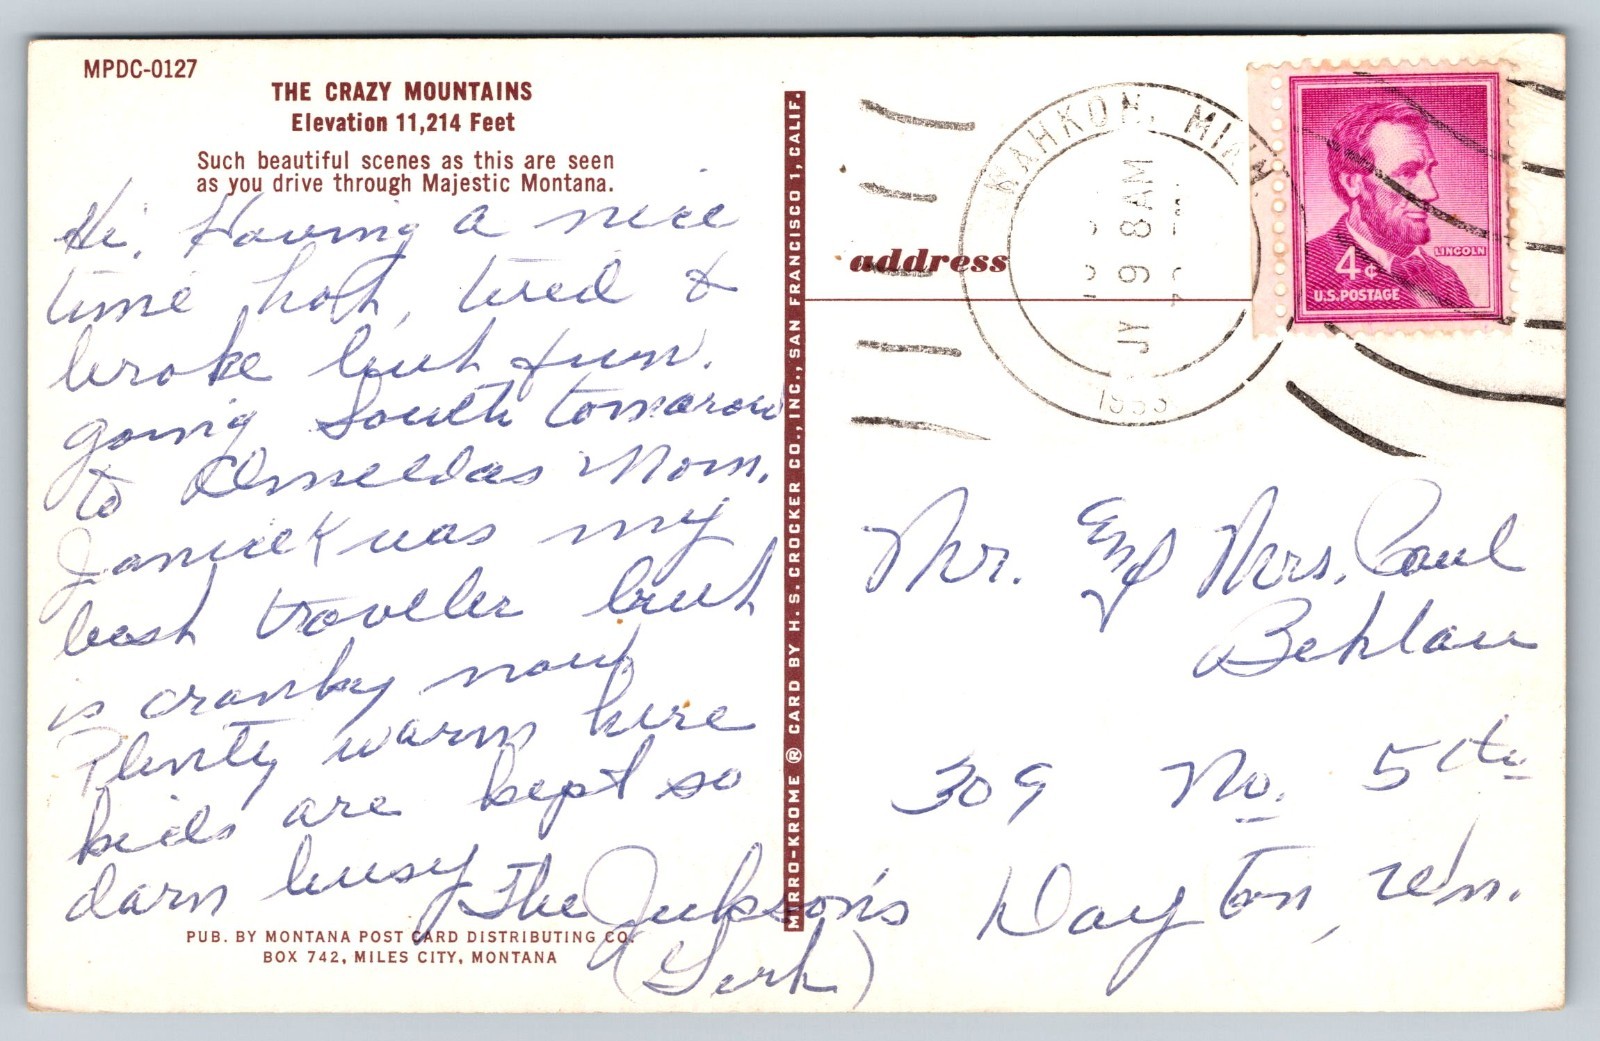 MPDC-0127
THE CRAZY MOUNTAINS
Elevation 11,214 Feet
Such beautiful scenes as this are seen
as you drive through Majestic Montana.
Hi. Having a nice
time hot, tired &
broke but fun.
going South tomarow
to Almeldas Mom.
was my
best traveler but
is cranky now
Plenty warm here
kids are kept so
darn busy
The Jukson's
PUB. BY MONTANA POST CARD DISTRIBUTING CO.
BOX 742, MILES CITY, MONTANA
MIRRO-KROME ® CARD BY H. S. CROCKER CO., INC., SAN FRANCISCO 1, CALIF.
address
WAHKON, MINN
JY 9 8 AM
LINCOLN
4¢
U.S. POSTAGE
Mr. and Mrs. Paul
Behlau
309 No. 5th
Dayton,